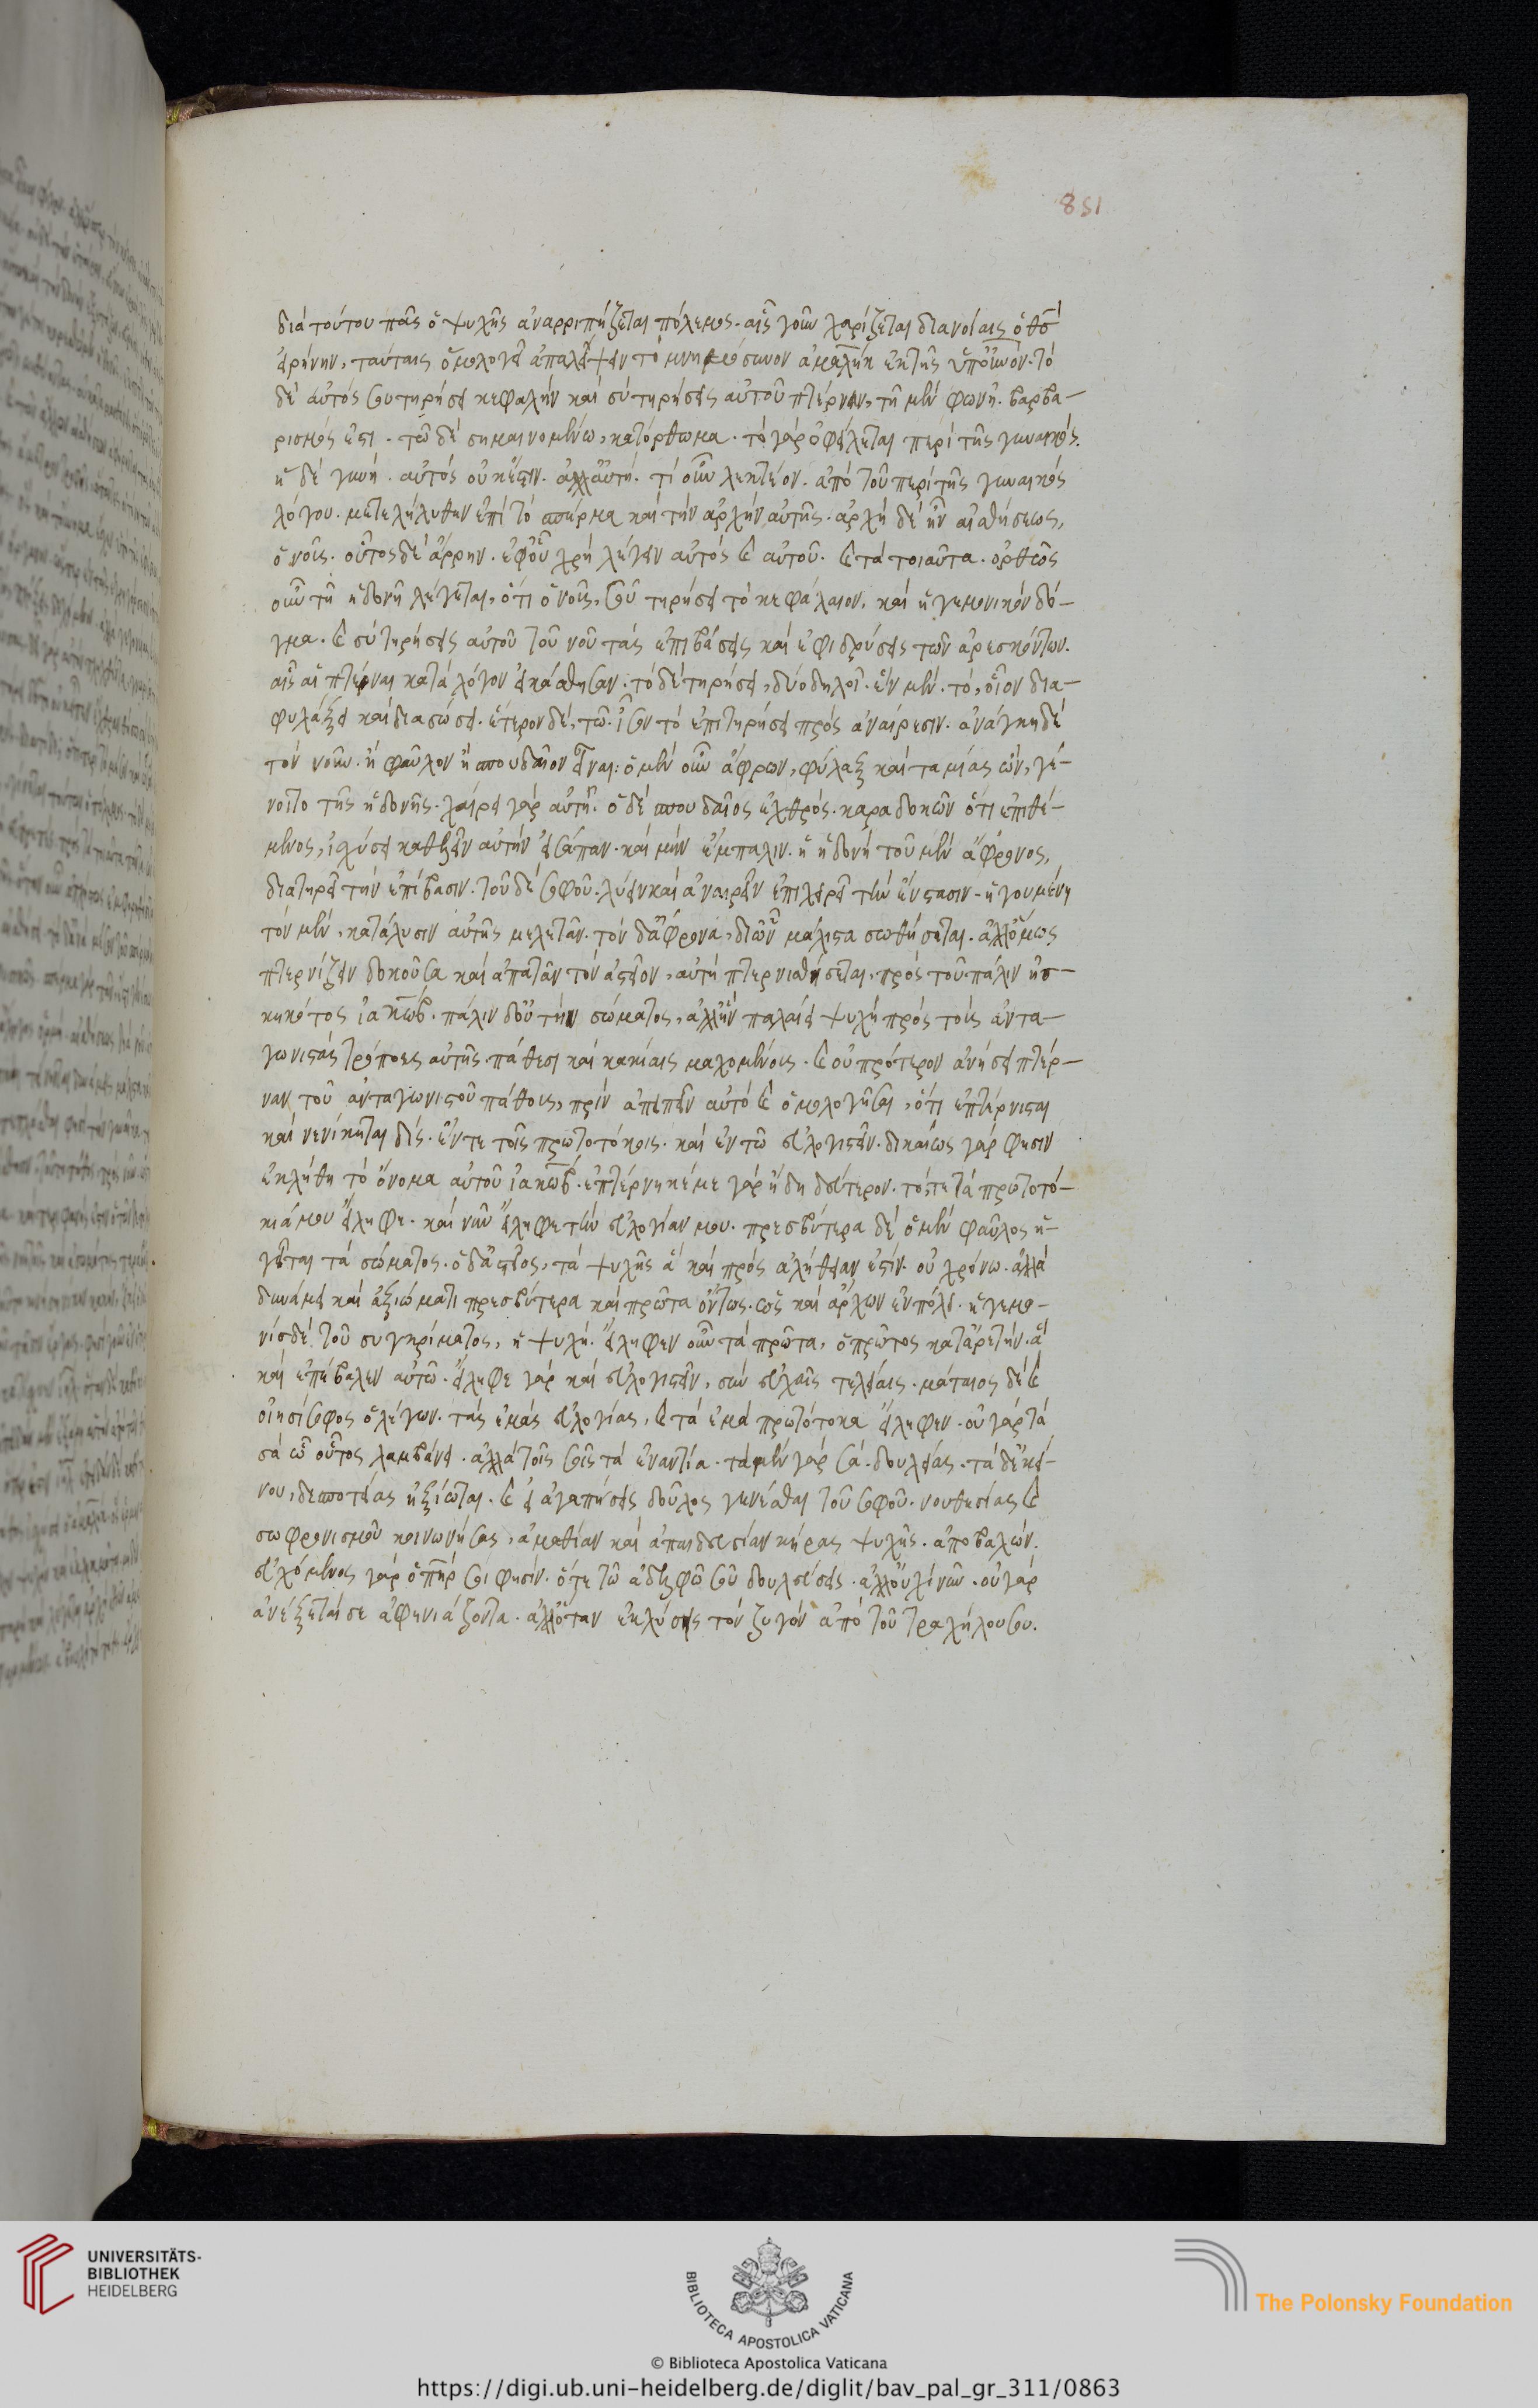 851
διά τούτου πᾶς ὁ ψυχῆς ἀναρριπίζεται πόλεμος. αἷς γοῦν χαρίζεται διανοίαις ὁ θσ
εἰρήνην, ταύταις ὁμολογεῖ ἀπαλείψειν τὸ μνημόσυνον ἀμαλὴκ ἐκ τῆς ὑπ' οὐνόν. τὸ
δὲ αὐτός σου τηρήσει κεφαλήν καὶ σὺ τηρήσεις αὐτοῦ πτέρναν, τῇ μὲν φωνῇ. βαρβα-
ρισμός ἐστι. τῷ δὲ σημαινομένω, κατόρθωμα. τὸ γὰρ ὀφείλεται περὶ τῆς γυναικός.
ἡ δὲ γυνή. αὐτός οὐκ ἔστιν. ἀλλ' αὐτή. τί οὖν λεκτέον. ἀπὸ τοῦ περὶ τῆς γυναικός
λόγου. μετελήλυθεν ἐπὶ τὸ σπέρμα καὶ τὴν ἀρχὴν αὐτῆς. ἀρχὴ δὲ ἦν αἰσθήσεως,
ὁ νοῦς. οὗτος δὲ ἄρρην. ἐφ' οὗ χρὴ λέγειν αὐτός καὶ αὐτοῦ. καὶ τὰ τοιαῦτα. ὀρθῶς
οὖν τῇ ἡδονῇ λέγεται, ὅτι ὁ νοῦς, σοῦ τηρήσει τὸ κεφάλαιον, καὶ ἡγεμονικὸν δό-
γμα. καὶ σὺ τηρήσεις αὐτοῦ τοῦ νοῦ τὰς ἐπιβάσεις καὶ ἐφιδρύσεις τῶν ἀρεσκόντων.
αἷς αἱ πτέρναι κατὰ λόγον εἰκάσθησαν. τὸ δὲ τηρήσει, δύο δηλοῖ. ἓν μὲν. τὸ, οἷον δια-
φυλάξει καὶ διασώσει. ἕτερον δέ, τῷ. ἴσον τὸ ἐπιτηρήσει πρὸς ἀναίρεσιν. ἀνάγκη δὲ
τὸν νοῦν. ἢ φαῦλον ἢ σπουδαῖον εἶναι: ὁ μὲν οὖν ἄφρων, φύλαξ καὶ ταμίας ὢν, γέ-
νοιτο τῆς ἡδονῆς. χαίρει γὰρ αὐτῇ. ὁ δὲ σπουδαῖος ἐχθρός. καραδοκῶν ὅτι ἐπιθέ-
μενος, ἰσχύσει καθελεῖν αὐτὴν εἰσάπαν. καὶ μὴν ἔμπαλιν. ἡ ἡδονὴ τοῦ μὲν ἄφρονος,
διατηρεῖ τὴν ἐπίβασιν. τοῦ δὲ σοφοῦ. λύειν καὶ ἀναιρεῖν ἐπιχειρεῖ τὴν ἔνστασιν. ἡγουμένη
τὸν μὲν, κατάλυσιν αὐτῆς μελετᾶν. τὸν δ' ἄφρονα, δι' ὧν μάλιστα σωθήσεται. ἀλλ' ὅμως
πτερνίζειν δοκοῦσα καὶ ἀπατᾶν τὸν ἀστεῖον, αὐτὴ πτερνισθήσεται, πρὸς τοῦ πάλην ἠσ-
κηκότος ἰακώβ. πάλην δ' οὐ τὴν σώματος, ἀλλ' ἣν παλαίει ψυχὴ πρὸς τοὺς ἀντα-
γωνιστὰς τρόπους αὐτῆς. πάθεσι καὶ κακίαις μαχομένους. καὶ οὐ πρότερον ἀνήσει πτέρ-
ναν τοῦ ἀνταγωνιστοῦ πάθους, πρὶν ἀπειπεῖν αὐτὸ καὶ ὁμολογῆσαι, ὅτι ἐπτέρνισται
καὶ νενίκηται δίς. ἔν τε τοῖς πρωτοτόκοις. καὶ ἐν τῷ εὐλογιστεῖν. δικαίως γάρ φησιν
ἐκλήθη τὸ ὄνομα αὐτοῦ ἰακώβ. ἐπτέρνηκέ με γὰρ ἤδη δεύτερον. τό, τε τὰ πρωτοτό-
κιά μου εἴληφε. καὶ νῦν εἴληφε τὴν εὐλογίαν μου. πρεσβύτερα δὲ ὁ μὲν φαῦλος ἡ-
γεῖται τὰ σώματος. ὁ δ' ἀστεῖος, τὰ ψυχῆς ἃ καὶ πρὸς ἀλήθειαν ἐστίν. οὐ χρόνω. ἀλλὰ
δυνάμει καὶ ἀξιώματι πρεσβύτερα καὶ πρῶτα ὄντως. ὡς καὶ ἄρχων ἐν πόλει. ἡγεμο-
νὶς δὲ τοῦ συγκρίματος, ἡ ψυχή. εἴληφεν οὖν τὰ πρῶτα, ὁ πρῶτος κατ' ἀρετήν. ἃ
καὶ ἐπέβαλεν αὐτῷ. εἴληφε γὰρ καὶ εὐλογιστεῖν, σὺν εὐχαῖς τελείαις. μάταιος δὲ καὶ
οἰησίσοφος ὁ λέγων. τὰς ἐμὰς εὐλογίας, καὶ τὰ ἐμὰ πρωτότοκα εἴληφεν. οὐ γὰρ τὰ
σὰ ὦ οὗτος λαμβάνει. ἀλλὰ τοῖς σοῖς τὰ ἐναντία. τὰ μὲν γὰρ σὰ. δουλείας. τὰ δὲ ἐκεί-
νου, δεσποτείας ἠξίωται. καὶ εἰ ἀγαπήσεις δοῦλος γενέσθαι τοῦ σοφοῦ. νουθεσίας καὶ
σωφρονισμοῦ κοινωνήσας, ἀμαθίαν καὶ ἀπαιδευσίαν κῆρας ψυχῆς. ἀποβαλών.
εὐχόμενος γὰρ ὁ πηρ σοι φησίν. ὅτι τῷ ἀδελφῷ σοῦ δουλεύσεις. ἀλλ' οὐχὶ νῦν. οὐ γὰρ
ἀνέξεταί σε ἀφηνιάζοντα. ἀλλ' ὅταν ἐκλύσῃς τὸν ζυγὸν ἀπὸ τοῦ τραχήλου σου.
UNIVERSITÄTS-
BIBLIOTHEK
HEIDELBERG
BIBLIOTECA APOSTOLICA VATICANA
The Polonsky Foundation
© Biblioteca Apostolica Vaticana
https://digi.ub.uni-heidelberg.de/diglit/bav_pal_gr_311/0863